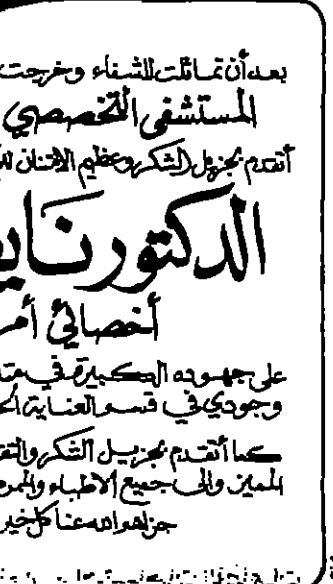 بعد أن تماثلت للشفاء وخرجت
المستشفى التخصصي
أتقدم بجزيل الشكر وعظيم الامتنان
الدكتور
أخصائي
على جهوده الكبيرة في
وجودي في قسم العناية
كما أتقدم بجزيل الشكر
المميز والى جميع الاطباء
جزاهم الله عنا كل خير